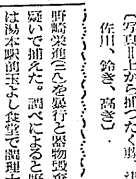 佐川、鈴き、高き〕
野崎栄道(三)を暴行と器物毀棄
疑いで捕えた。調べによると野
は湯本駅前玉よし食堂で調理士